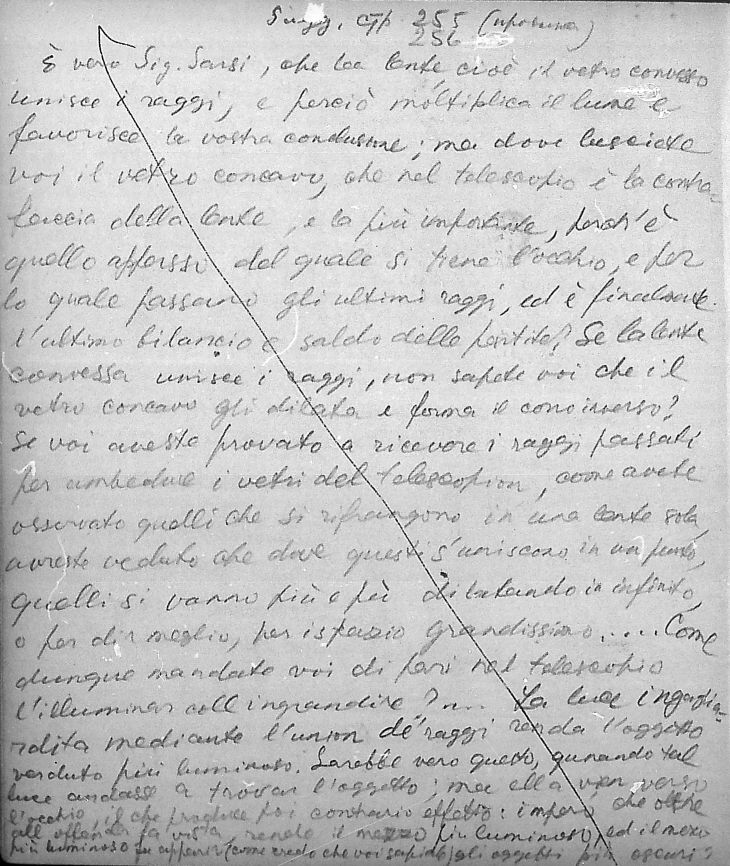 255 (
256
È vero Sig. Sarsi, che la lente, cioè il vetro convesso
unisce i raggi, e perciò moltiplica il lume e
favorisce la vostra conclusione; ma dove lasciate
voi il vetro concavo, che nel telescopio è la contra-
faccia della lente, e la più importante, perch'è
quello appresso del quale si tiene l'occhio, e per
lo quale passano gli ultimi raggi, ed è finalmente
l'ultimo bilancio e saldo delle partite? Se la lente
convessa unisce i raggi, non sapete voi che il
vetro concavo gli dilata e forma il cono inverso?
Se voi aveste provato a ricevere i raggi passati
per ambedue i vetri del telescopion, come avete
osservato quelli che si rifrangono in una lente sola,
avreste veduto che dove questi s'uniscono in un punto,
quelli si vanno più e più dilatando in infinito,
o per dir meglio, per ispazio grandissimo.... Come
dunque mandate voi di pari nel telescopio
l'illuminar coll'ingrandire?... La luce ingagliar-
dita mediante l'union de' raggi renda l'oggetto
veduto più luminoso. Sarebbe vero questo, qunando tal
luce andasse a trovar l'oggetto; ma ella vien verso
l'occhio, il che produce poi contrario effetto: imperò che oltre
all' offender la vista, rende il mezzo più luminoso, ed il mezo
più luminoso fa apparir (come credo che voi sapiate) gli oggetti più oscuri?